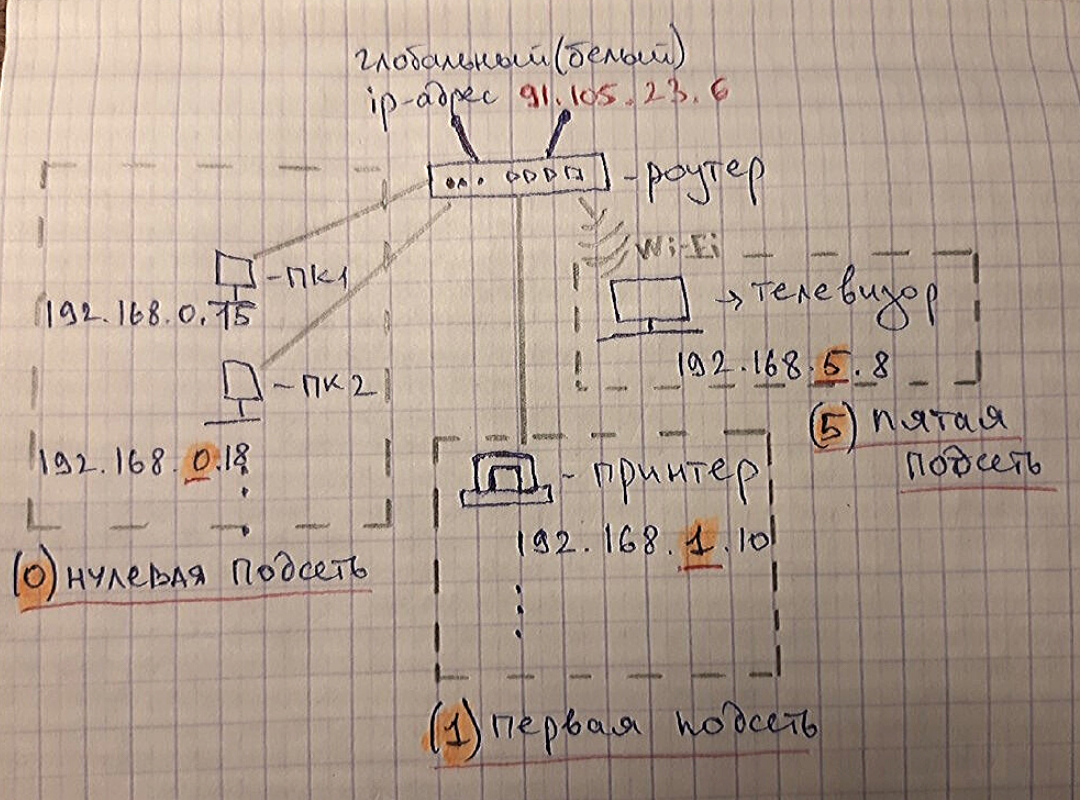 глобальный (белый)
ip-адрес 91.105.23.6
- роутер
Wi-Fi
- ПК1
192.168.0.15
→ телевизор
192.168.5.8
- ПК2
192.168.0.18
(5) пятая
подсеть
- принтер
192.168.1.10
(0) нулевая подсеть
(1) первая подсеть